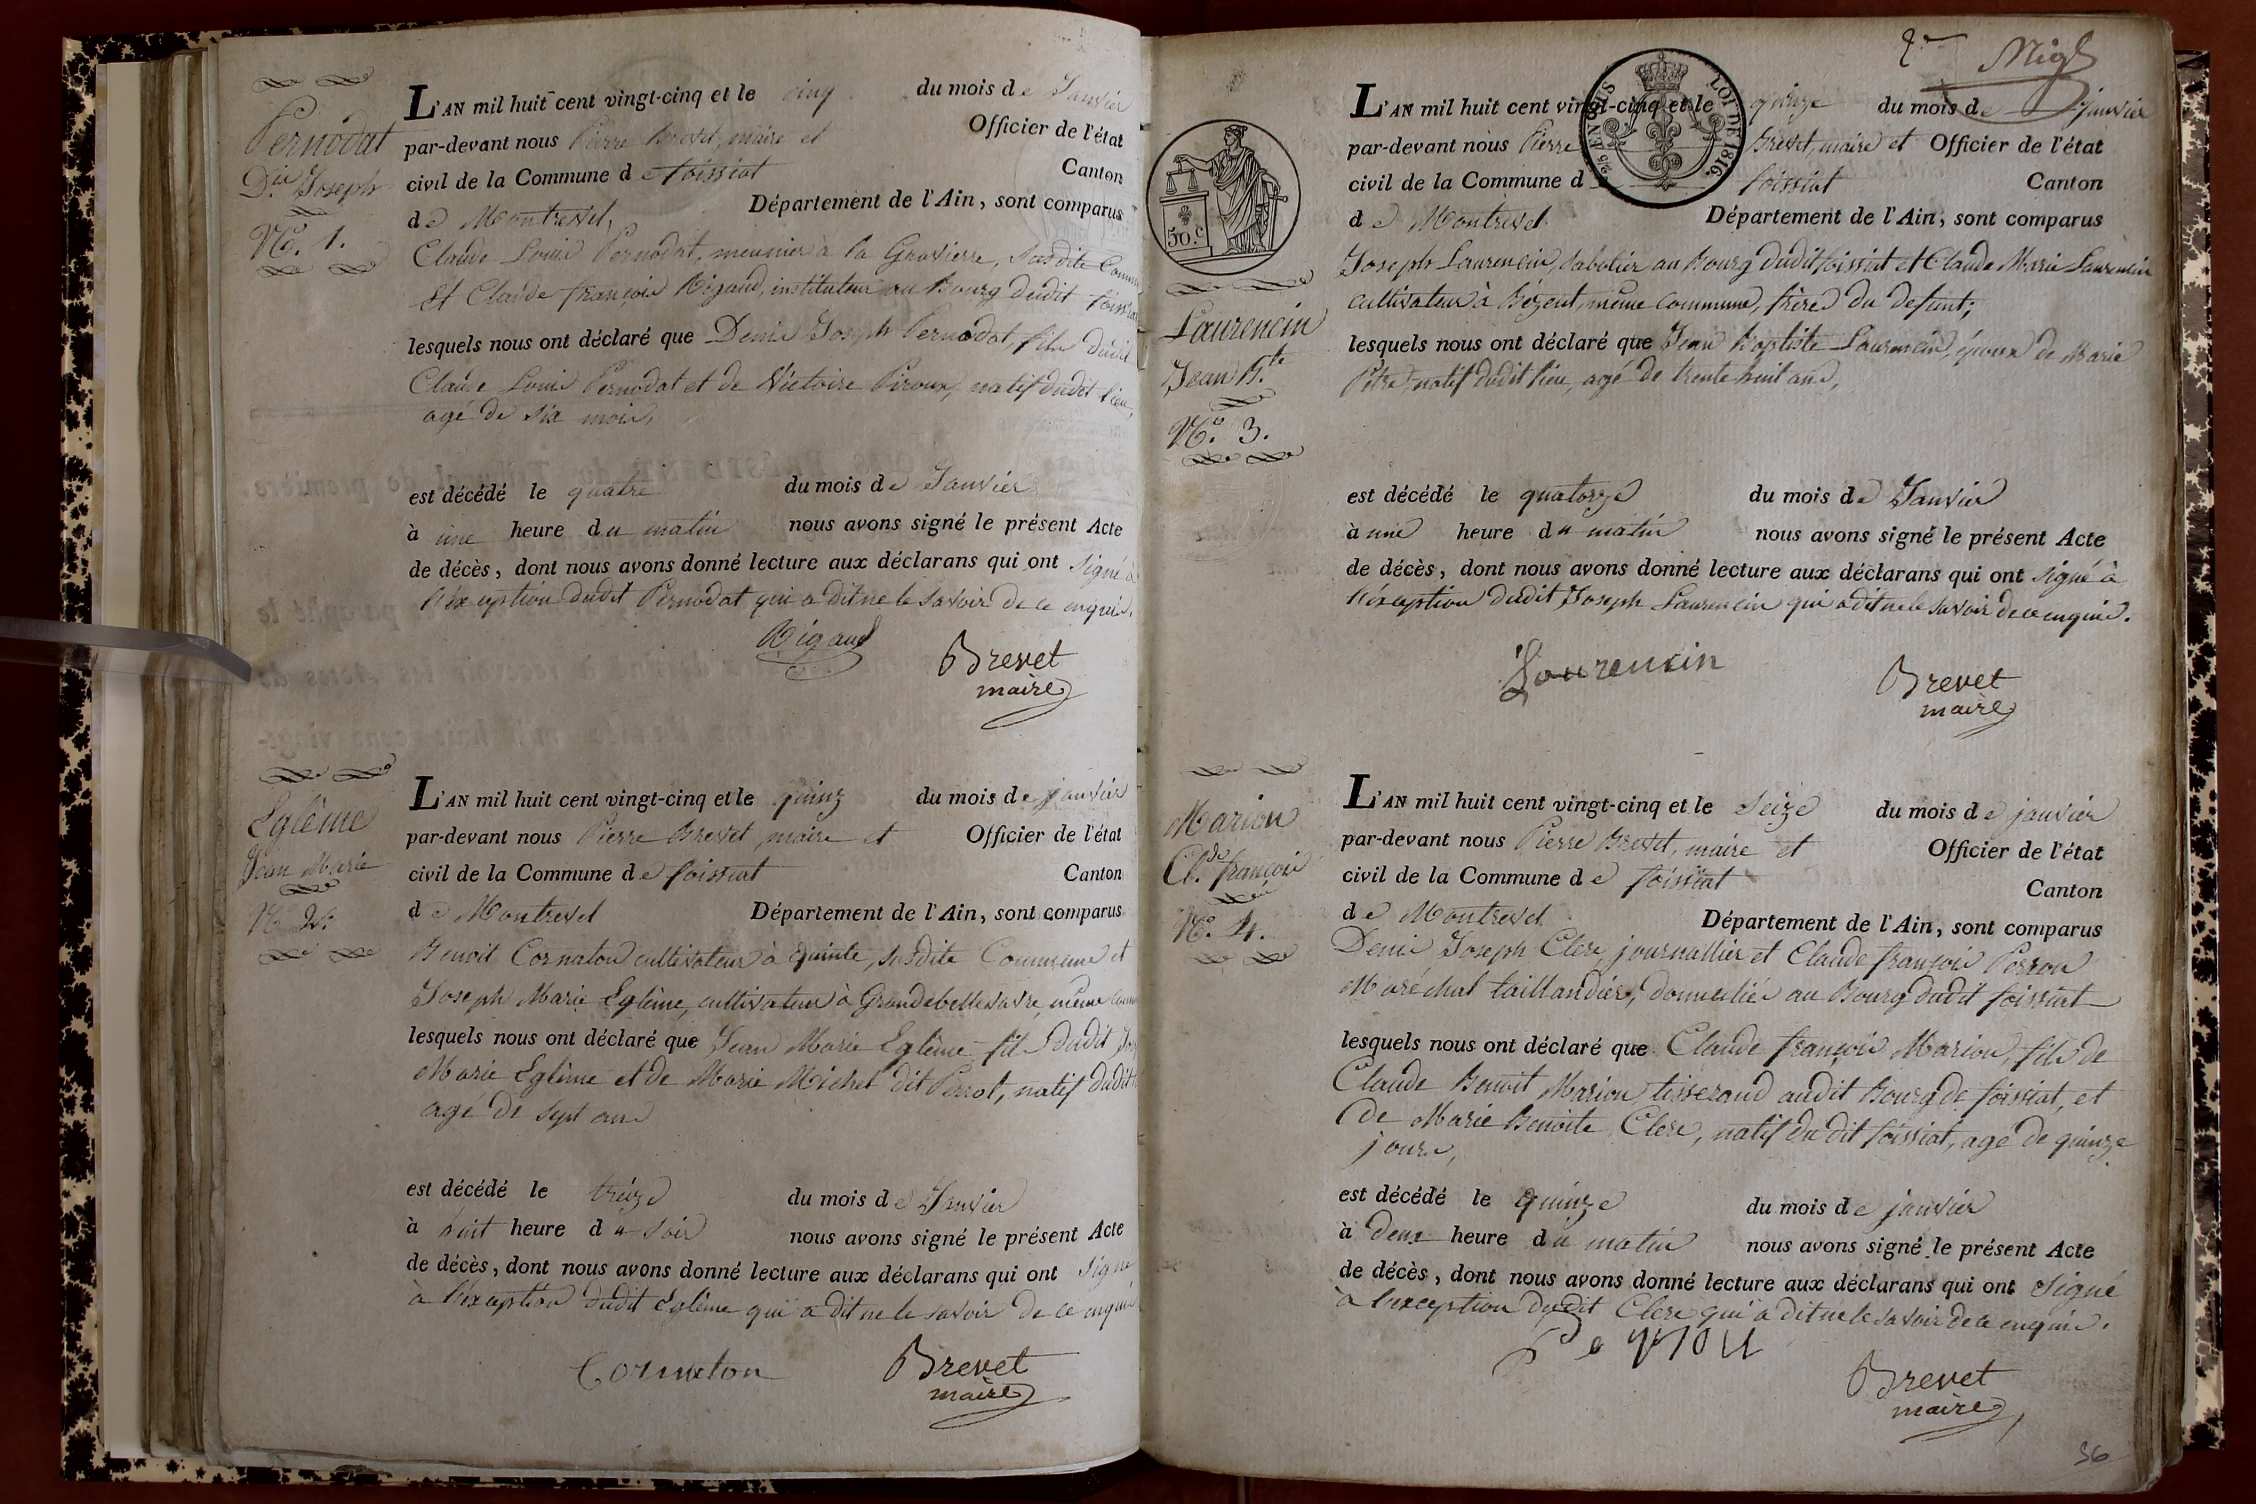 Pernodat
D.is Joseph
N.o 1.
L'AN mil huit cent vingt-cinq et le cinq du mois de Janvier
par-devant nous Pierre Brevet, maire et Officier de l'état
civil de la Commune de foissiat Canton
de Montrevel, Département de l'Ain, sont comparus
Claude Louis Pernodat, meunier à la Gravierre, susdite Commune
Et Claude françois Rigaud, instituteur au Bourg dudit foissiat
lesquels nous ont déclaré que Denis Joseph Pernodat, fils dudit
Claude Louis Pernodat et de Victoire Piroux, natif dudit lieu,
agé de six mois,
est décédé le quatre du mois de Janvier
à une heure du matin nous avons signé le présent Acte
de décès, dont nous avons donné lecture aux déclarans qui ont signé à
l'exception dudit Pernodat qui a dit ne le savoir de ce enquis.
Rigaud
Brevet
maire
Eglême
Jean Marie
N.o 2.
L'AN mil huit cent vingt-cinq et le quinz du mois de janvier
par-devant nous Pierre Brevet, maire et Officier de l'état
civil de la Commune de foissiat Canton
de Montrevel Département de l'Ain, sont comparus
Benoit Cornaton cultivateur à quinte, susdite Commune et
Joseph Marie Eglême, cultivateur à Grandebellevavre, même
lesquels nous ont déclaré que Jean Marie Eglême fils dudit
Marie Eglême et de Marie Michel dit Perrot, natif dudit
agé de sept ans
est décédé le treize du mois de Janvier
à huit heure du soir nous avons signé le présent Acte
de décès, dont nous avons donné lecture aux déclarans qui ont signé
à l'exception dudit Eglême qui a dit ne le savoir de ce enquis
Cornaton
Brevet
maire
2.e
LOI DE 1816.
EN SUS
50.c
Laurencin
Jean B.te
N.o 3.
L'AN mil huit cent vingt-cinq et le quinze du mois de janvier
par-devant nous Pierre Brevet, maire et Officier de l'état
civil de la Commune de foissiat Canton
de Montrevel Département de l'Ain, sont comparus
Joseph Laurencin, sabotier au Bourg dudit foissiat et Claude Marie Laurencin
cultivateur à Bézent, même commune, frères du defunt;
lesquels nous ont déclaré que Jean Baptiste Laurencin, époux de Marie
Pitre, natif dudit lieu, agé de trente huit ans,
est décédé le quatorze du mois de Janvier
à une heure du matin nous avons signé le présent Acte
de décès, dont nous avons donné lecture aux déclarans qui ont signé à
l'éxception dudit Joseph Laurencin qui a dit ne le savoir de ce enquis.
Laurencin
Brevet
maire
Marion
Cl.de françois
N.o 4.
L'AN mil huit cent vingt-cinq et le seize du mois de janvier
par-devant nous Pierre Brevet, maire et Officier de l'état
civil de la Commune de foissiat Canton
de Montrevel Département de l'Ain, sont comparus
Denis Joseph Clerc, journallier et Claude françois Perron
Maréchal taillandier, domiciliés au Bourg dudit foissiat
lesquels nous ont déclaré que Claude françois Marion, fils de
Claude Benoit Marion tisserand audit Bourg de foissiat, et
de Marie Benoite Clerc, natif du dit foissiat, agé de quinze
jours,
est décédé le quinze du mois de janvier
à deux heure du matin nous avons signé le présent Acte
de décès, dont nous avons donné lecture aux déclarans qui ont signé
à l'exception dudit Clerc qui a dit ne le savoir de ce enquis.
Perron
Brevet
maire
36